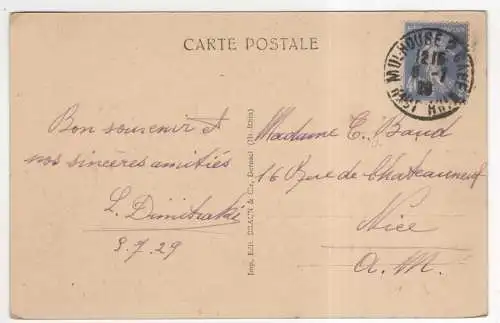 CARTE POSTALE
MULHOUSE GARE
HAUT RHIN
Bon souvenir et
nos sincères amitiés
L. Dimitraki
8.7.29
Imp. Edit. BRAUN & Cie, Dornach (Ht-Rhin)
Madame C. Baud
16 Rue de Chateauneuf
Nice
A.M.